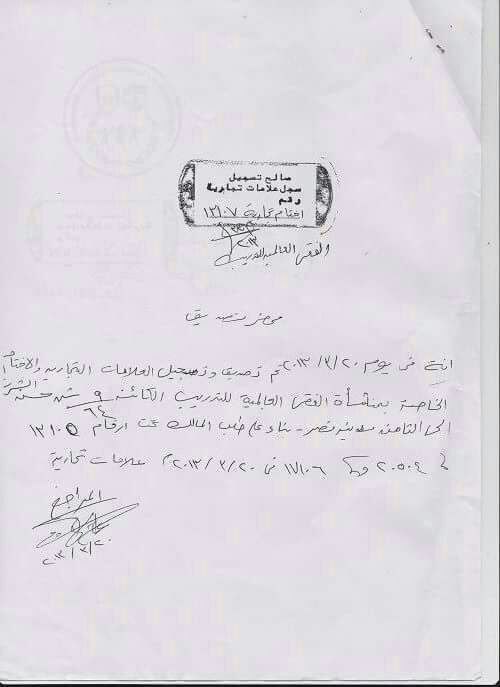 صالح تسجيل
سجل علامات تجارية
رقم
اختام تجارية ١٢١٠٧
القمى العالمية للتدريب
محضر تصديق
انه فى يوم ٢٠١٣/٣/٢٠ تم تصديق وتسجيل العلامات التجارية والاختام
الخاصة بمنشأة القمى العالمية للتدريب الكائنة ٩ ش حسن الشريف
الحى الثامن مدينة نصر - بناء على طلب المالك تحت ارقام ١٢١٠٥
٢٠٥٠٤ ١٧١٠٦ فى ٢٠١٣/٣/٢٠م علامات تجارية
المراجع
٢٠١٣/٣/٢٠